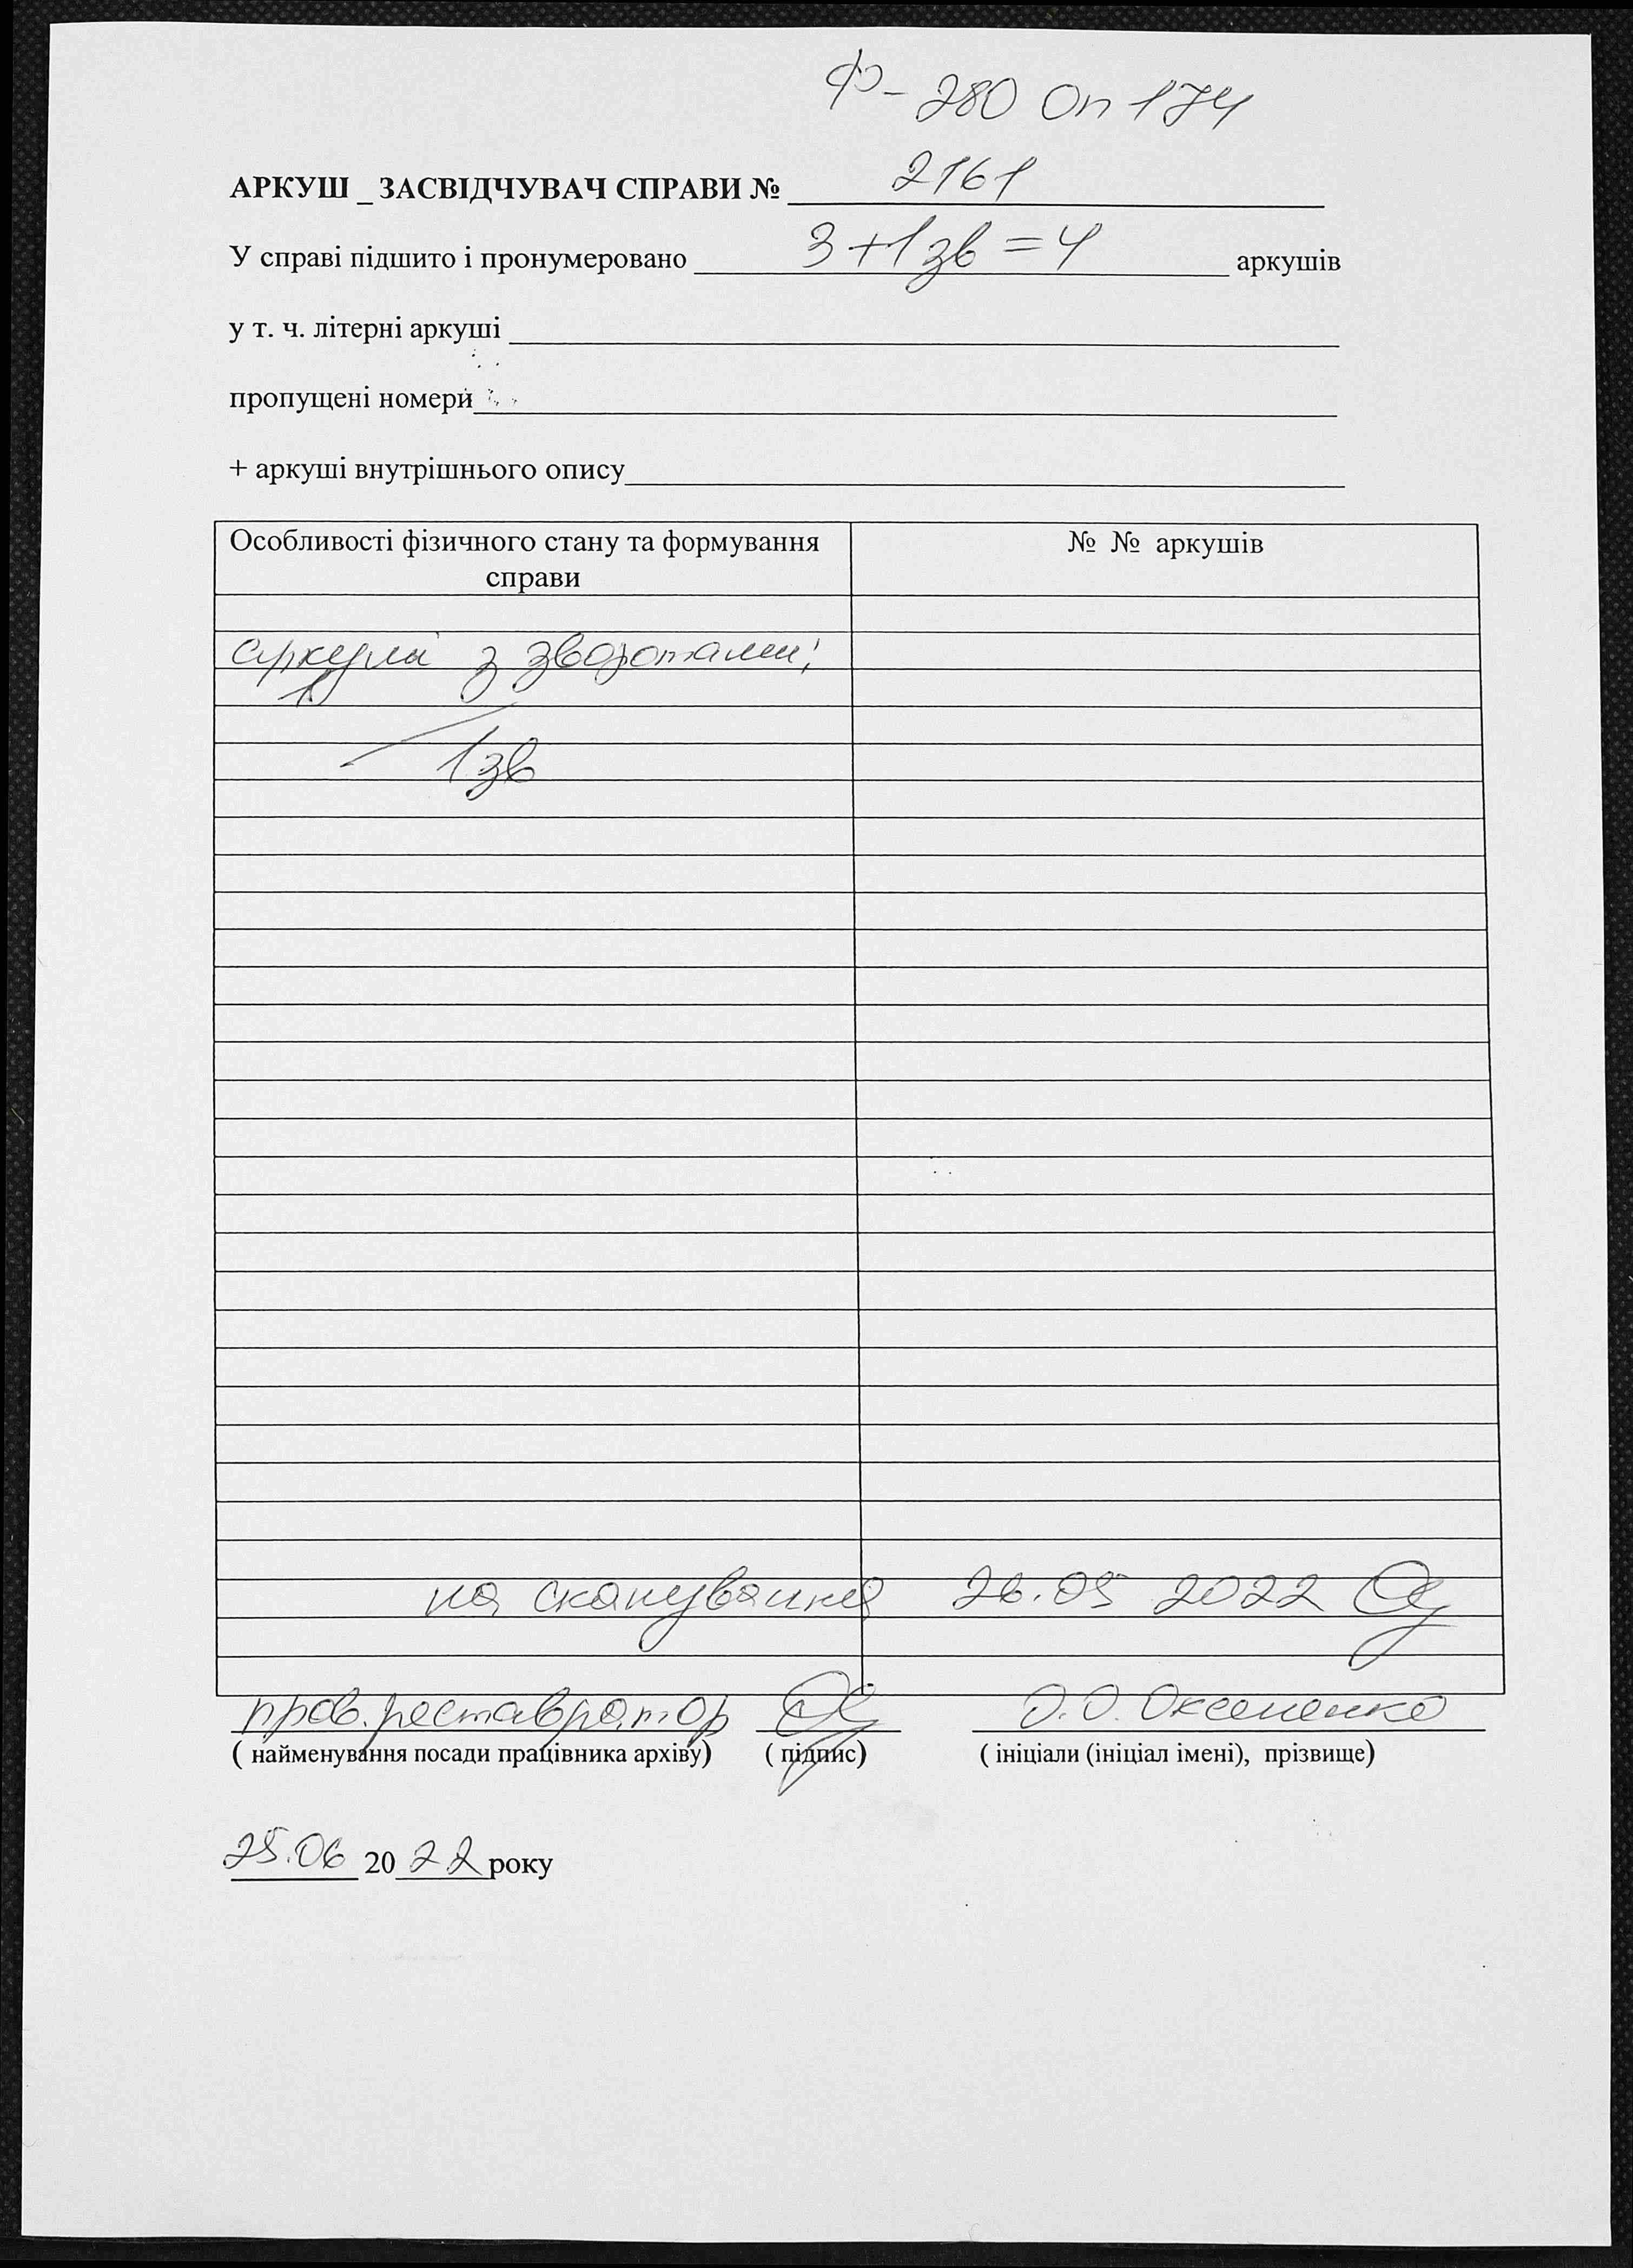 Ф-280 Оп 174
АРКУШ _ ЗАСВІДЧУВАЧ СПРАВИ № 2161
У справі підшито і пронумеровано 3+1зв=4 аркушів
у т. ч. літерні аркуші
пропущені номери
+ аркуші внутрішнього опису
Особливості фізичного стану та формування
справи
№ № аркушів
аркуші з зворотами;
1
1зв
на сканування 26.05 2022
пров. реставратор О.О. Оксененко
( найменування посади працівника архіву) ( підпис) ( ініціали (ініціал імені), прізвище)
25.06 2022 року